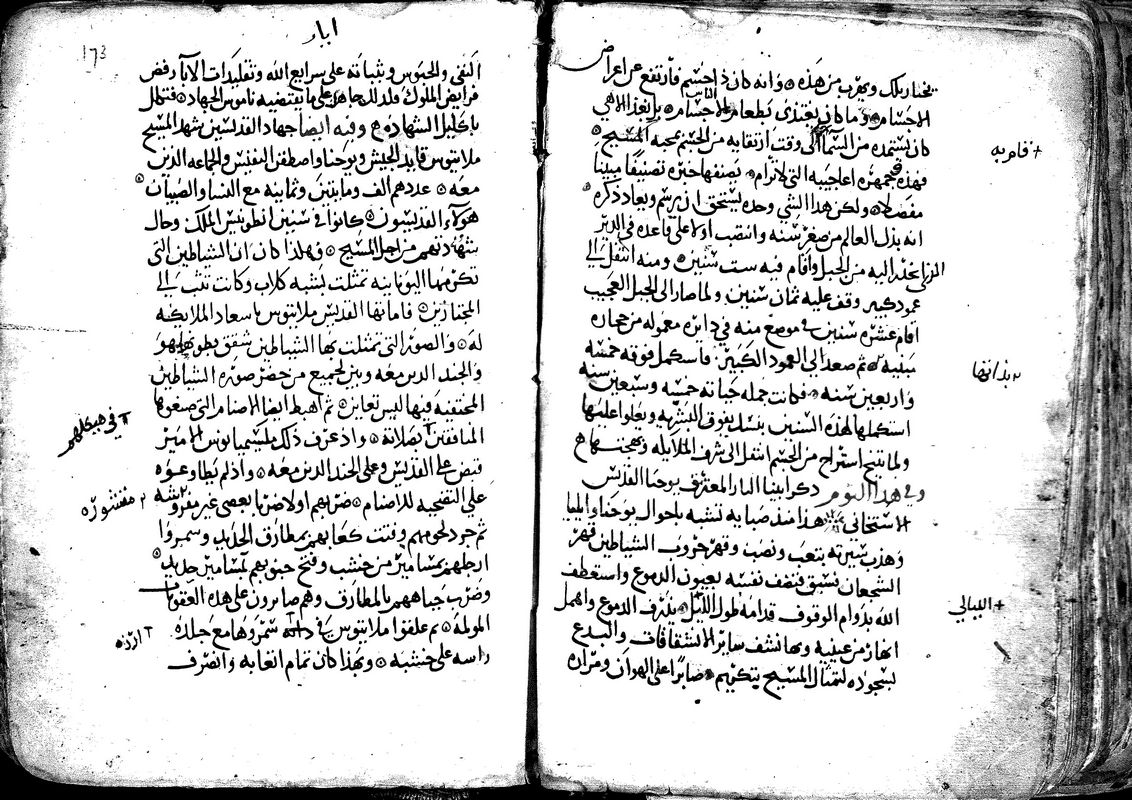 يختار بلك ويهرب من هذه وانه كان ذا جسم فارتفع عن اعراض
الاجسام وما كان يغتذي بطعام الاجسام بل بغذا الاهي
كان يستمده من السما الى وقت ارتقايه من الجسم بمحبة المسيح
فهذه جمهره اعاجيبه التي لاترام يصنفها خبره تصنيفا مبينا
مفصلا ولكن هذا الشي وحده يستحق ان يرسم ويعاد ذكره
انه بذل العالم من صغر سنه وانتصب اولا على قاعده في الدير
الذي تحدر اليه من الجبل واقام فيه ست سنين ومنه انتقل الى
عمود كبير وقف عليه ثمان سنين ولما صار الى الجبل العجيب
اقام عشره سنين في موضع منه في دايره معموله من حجاره
مبنيه ثم صعد الى العمود الكبير فاستكمل فوقه خمسه
واربعين سنه فكانت جمله حياته خمسه وسبعين سنه
استكملها لهذه السنين بنسك يفوق البشريه ويعلوا عليها
ولما تنيح استراح من الجسم انتقل الى شرف الملايكه وبهجتهم
وفي هذا اليوم ذكر ابينا البار المعترف يوحنا القديس
الاستخاني هذا منذ صبايه تشبه باحوال يوحنا وايليا
وهذب سيرته بتعب ونصب وقهر حروب الشياطين قهر
الشجعان فسبق فنضف نفسه بعيون الدموع واستعطف
الله بدوام الوقوف قدامه طول الليل بذرف الدموع واهمل
انهار من عينيه وبها نشف ساير الانشقاقات والبدع
بسجوده لتمثال المسيح يتكريم صابرا على الهوان ومراره
+ قاومه
بذاتها
+ الليالي
ايار
173
النفي والحبوس وثباته على شرايع الله وتقليدات الابا رفض
فرايض الملوك ولذلك جاهد على ما يقتضيه ناموس الجهاد فتكلل
باكليل الشهاده وفيه ايضا جهاد القديسين شهدا المسيح
ملاتيوس قايد الجيش ويوحنا واصطفن النفيس والجماعه الذين
معه عددهم الف ومايتين وثمانيه مع النسا والصبيان
هولاء القديسون كانوا في سنين انطونيس الملك وحال
شهادتهم من اجل المسيح فهكذا كان ان الشياطين التي
تكرمها اليونانيه تمثلت بشبه كلاب وكانت تثب الى
المجتازين فاماتها القديس ملاتيوس باسعاد الملايكه
له والصور التي تمثلت بها الشياطين شقق بطونها هو
والجند الذين معه وبين لجميع من حضر صوره الشياطين
المختفيه فيها ليس تعاين ثم اهبط ايضا الاصنام التي صنعوها
المنافقين بصلاته واذ عرف ذلك مكسيميانوس الامير
قبض على القديس وعلى الجند الذين معه واذ لم يطاوعوه
على التضحيه للاصنام ضربهم اولا ضربا بعصي غير مقروشه
ثم جرد لحومهم وفتت كعابهم بمطارق الحديد وسمروا
ارجلهم بمسامير من خشب وفتح جنوبهم بمسامير حديد
وضرب جباههم بالمطارق وهم صابرون على هذه العقوبات
المولمه ثم علقوا ملاتيوس في سمروها مع جلده
راسه على خشبه وبهذا كان تمام اتعابه وانصرف
+ في هيكلهم
مقشوره
ارزه